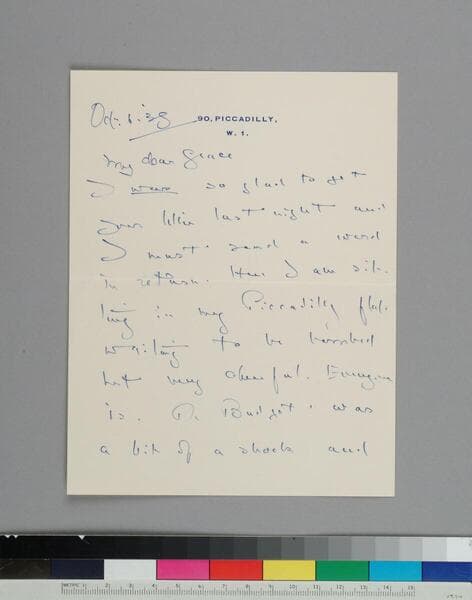 Oct. 6. '39
90, PICCADILLY,
W. 1.
My dear Grace
I was so glad to get
your letter last night and
I must send a word
in return. Here I am sit-
ting in my Piccadilly flat.
waiting to be bombed
but very cheerful. Everyone
is. The Budget was
a bit of a shock and